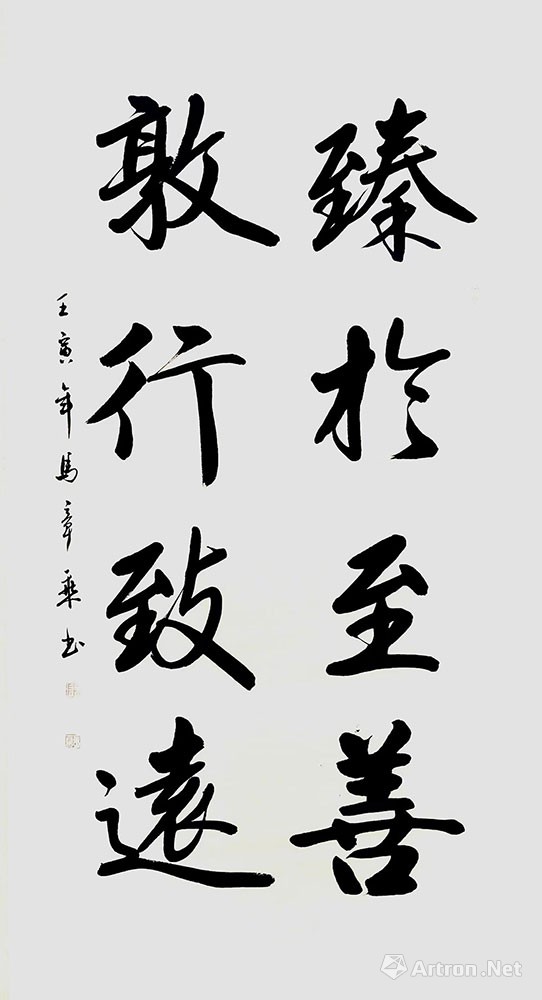 臻於至善
敦行致遠
壬寅年馬章乘书
Artron.Net